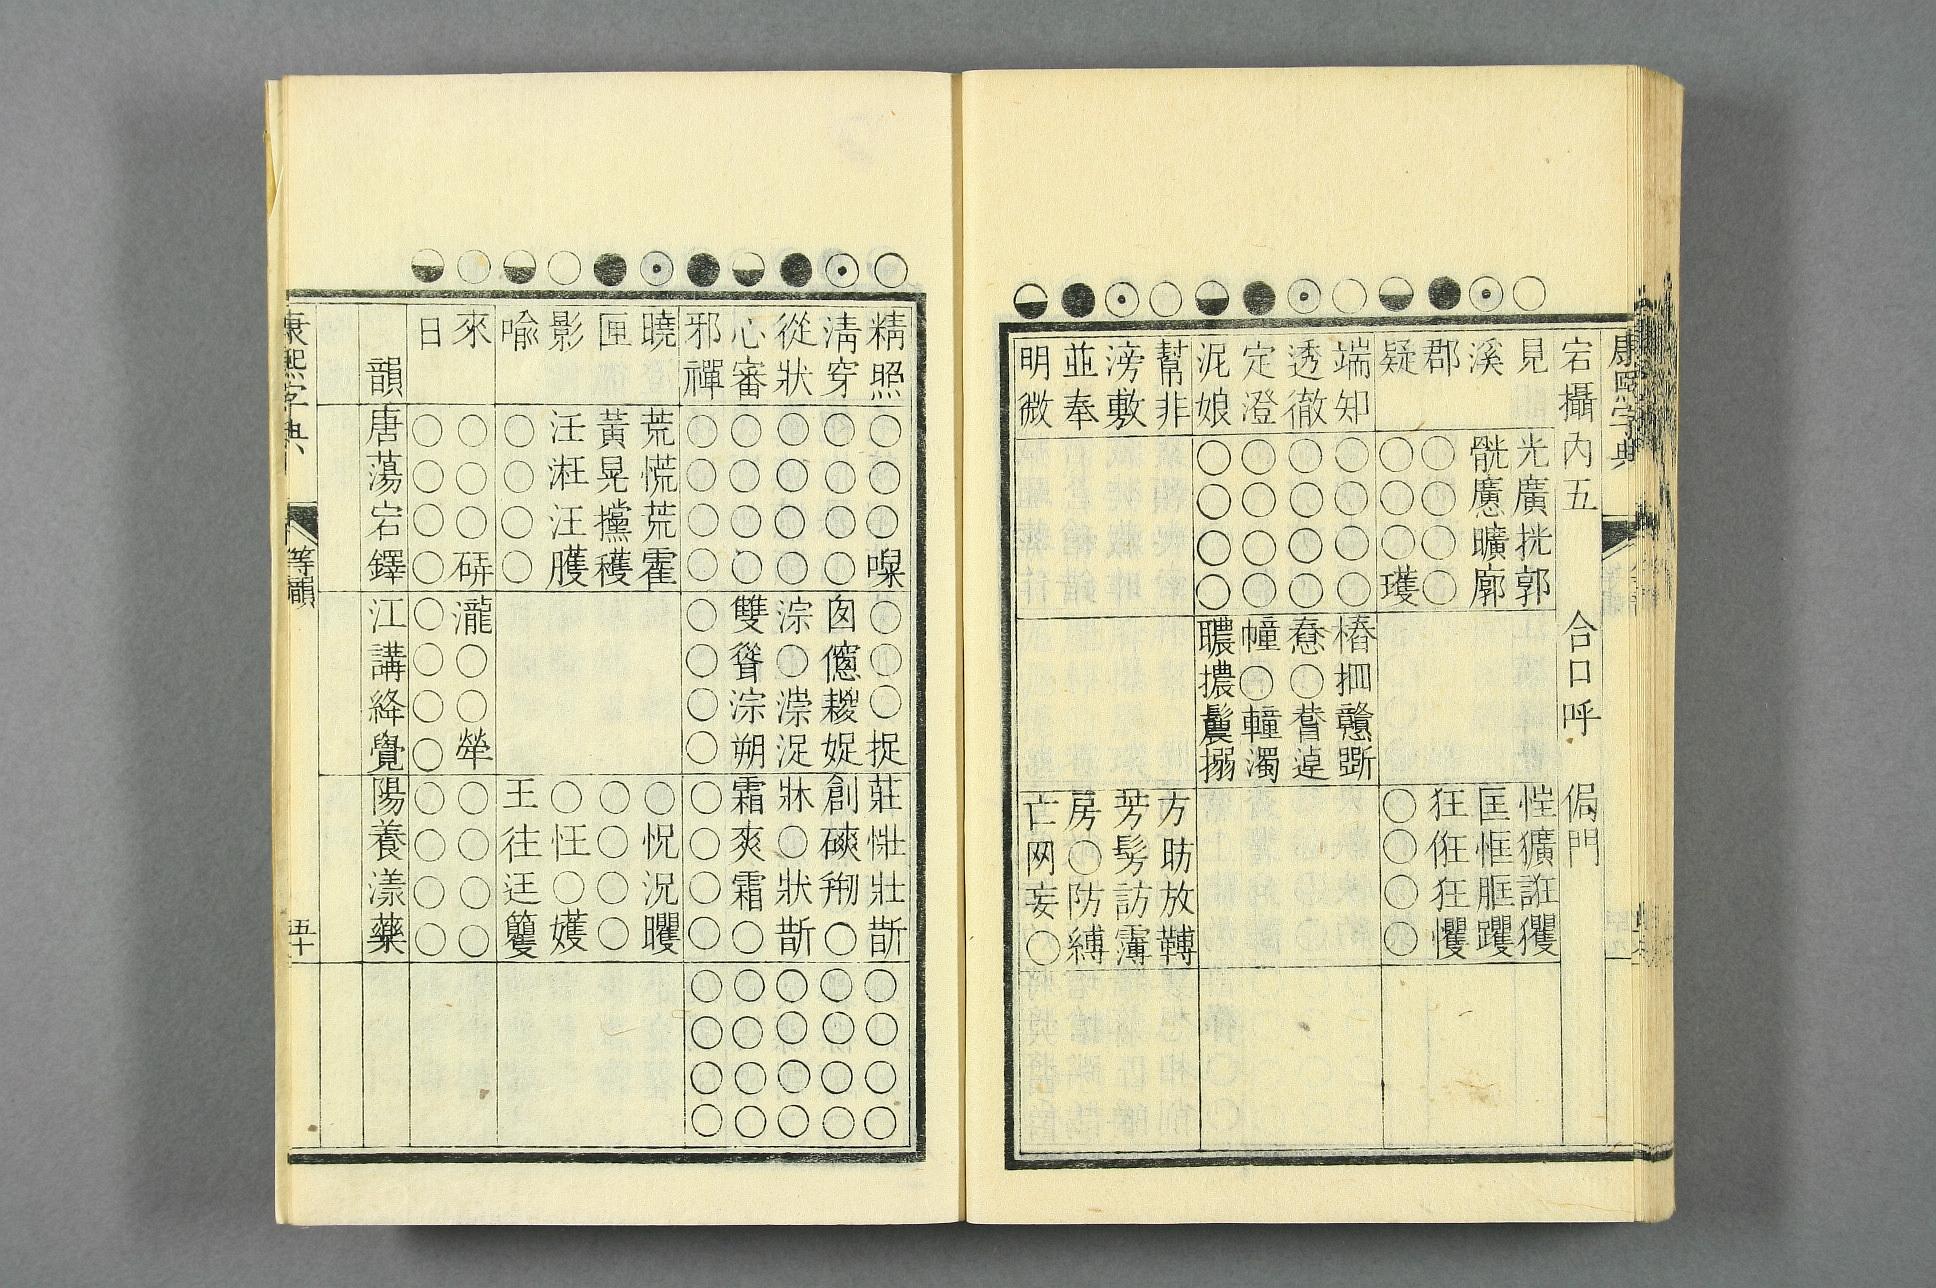 宕攝內五 合口呼 侷門
見 光廣挄郭 恇獷誑玃
溪 骯廣曠廓 匡恇眶躩
郡 ○○○○ 狂俇狂戄
疑 ○○○瓁 ○○○○
端知 ○○○○ 樁戇斲
透徹 ○○○○ 惷○踔
定澄 ○○○○ 幢○䡴濁
泥娘 ○○○○ 聬擃鬞搦
幫非 方昉放轉
滂敷 芳髣訪
並奉 房○防縛
明微 亡网妄○
康熙字典
精照 ○○○ ○○○捉 莊壯斮 ○○○○
清穿 ○○○○ 囱憁娖 創磢○ ○○○○
從狀 ○○○○ 淙○漴浞 牀○狀斮 ○○○○
心審 ○○○○ 雙聳淙朔 霜爽霜○ ○○○○
邪禪 ○○○○ ○○○○ ○○○○ ○○○○
曉 荒慌荒霍 ○怳況矆
匣 黃晃攩穫 ○○○○
影 汪汪臒 ○枉○嬳
喻 ○○○○ 王往迋籰
來 ○○○硦 瀧○○犖 ○○○○
日 ○○○○ ○○○○ ○○○○
韻 唐蕩宕鐸 江講絳覺 陽養漾藥
康熙字典 等韻 五十